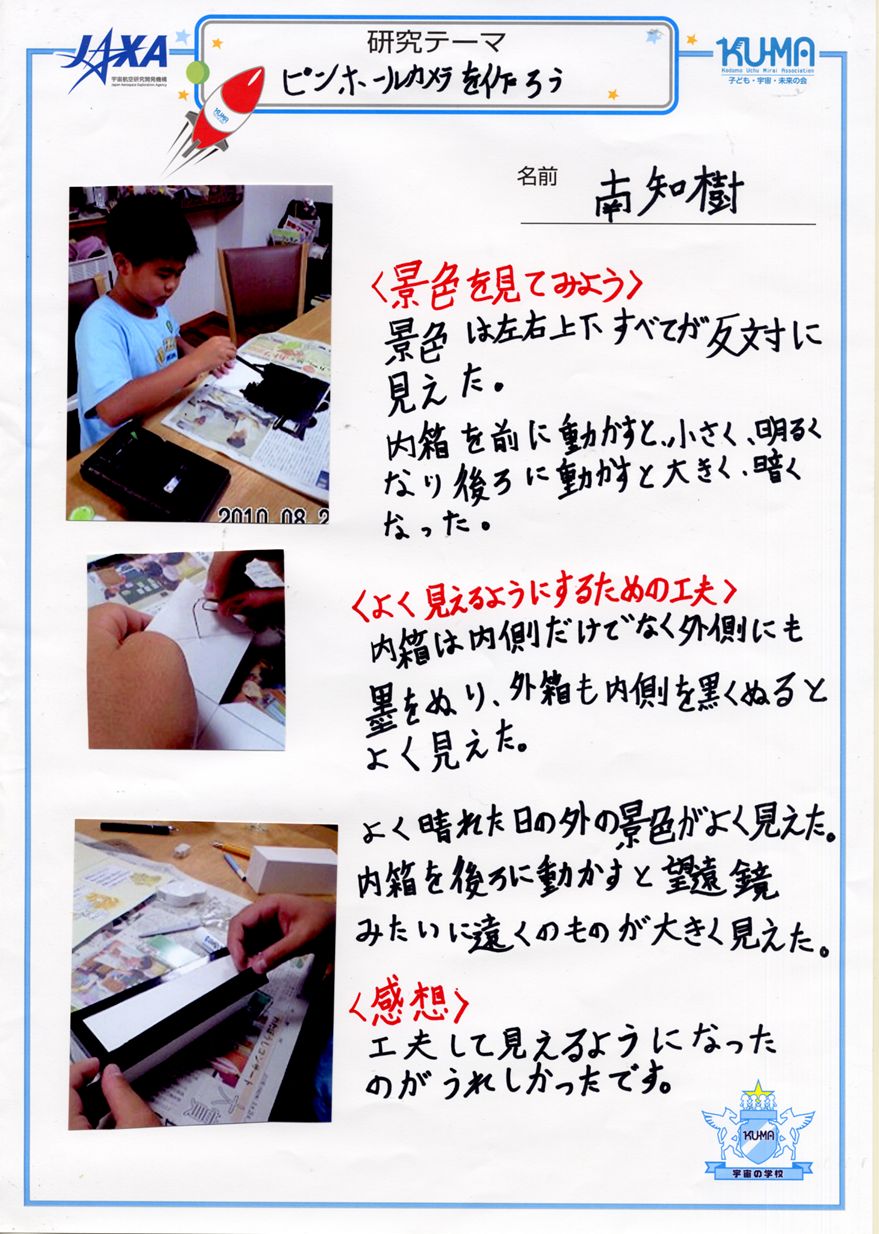 JAXA
宇宙航空研究開発機構
Japan Aerospace Exploration Agency
研究テーマ
ピンホールカメラを作ろう
KU-MA
Kodomo Uchu Mirai Association
子ども・宇宙・未来の会
KU-MA
名前 南知樹
〈景色を見てみよう〉
景色は左右上下すべてが反対に
見えた。
内箱を前に動かすと、小さく、明るく
なり後ろに動かすと大きく、暗く
なった。
2010 08 2
〈よく見えるようにするための工夫〉
内箱は内側だけでなく外側にも
墨をぬり、外箱も内側を黒くぬると
よく見えた。
よく晴れた日の外の景色がよく見えた。
内箱を後ろに動かすと望遠鏡
みたいに遠くのものが大きく見えた。
〈感想〉
工夫して見えるようになった
のがうれしかったです。
KU-MA
宇宙の学校